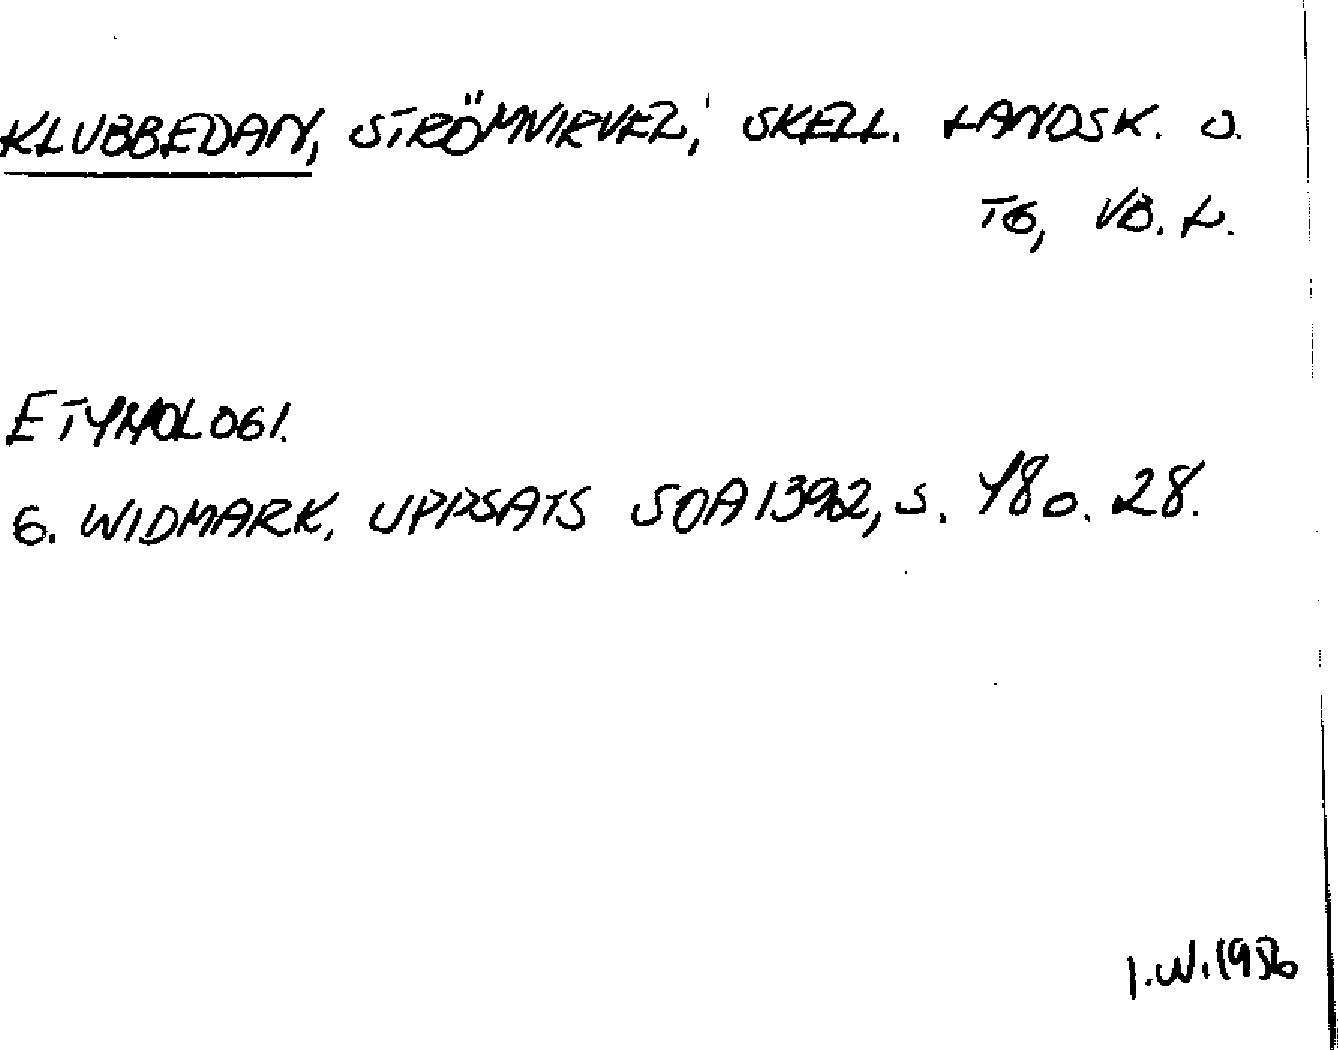 KLUBBEDAN, STRÖMVIRVEL, SKELL. LANDSK. O.
TG, VB. L.
ETYMOLOGI.
G. WIDMARK, UPPSATS SOA 1392, S. 18 O. 28.
I.W. 1986